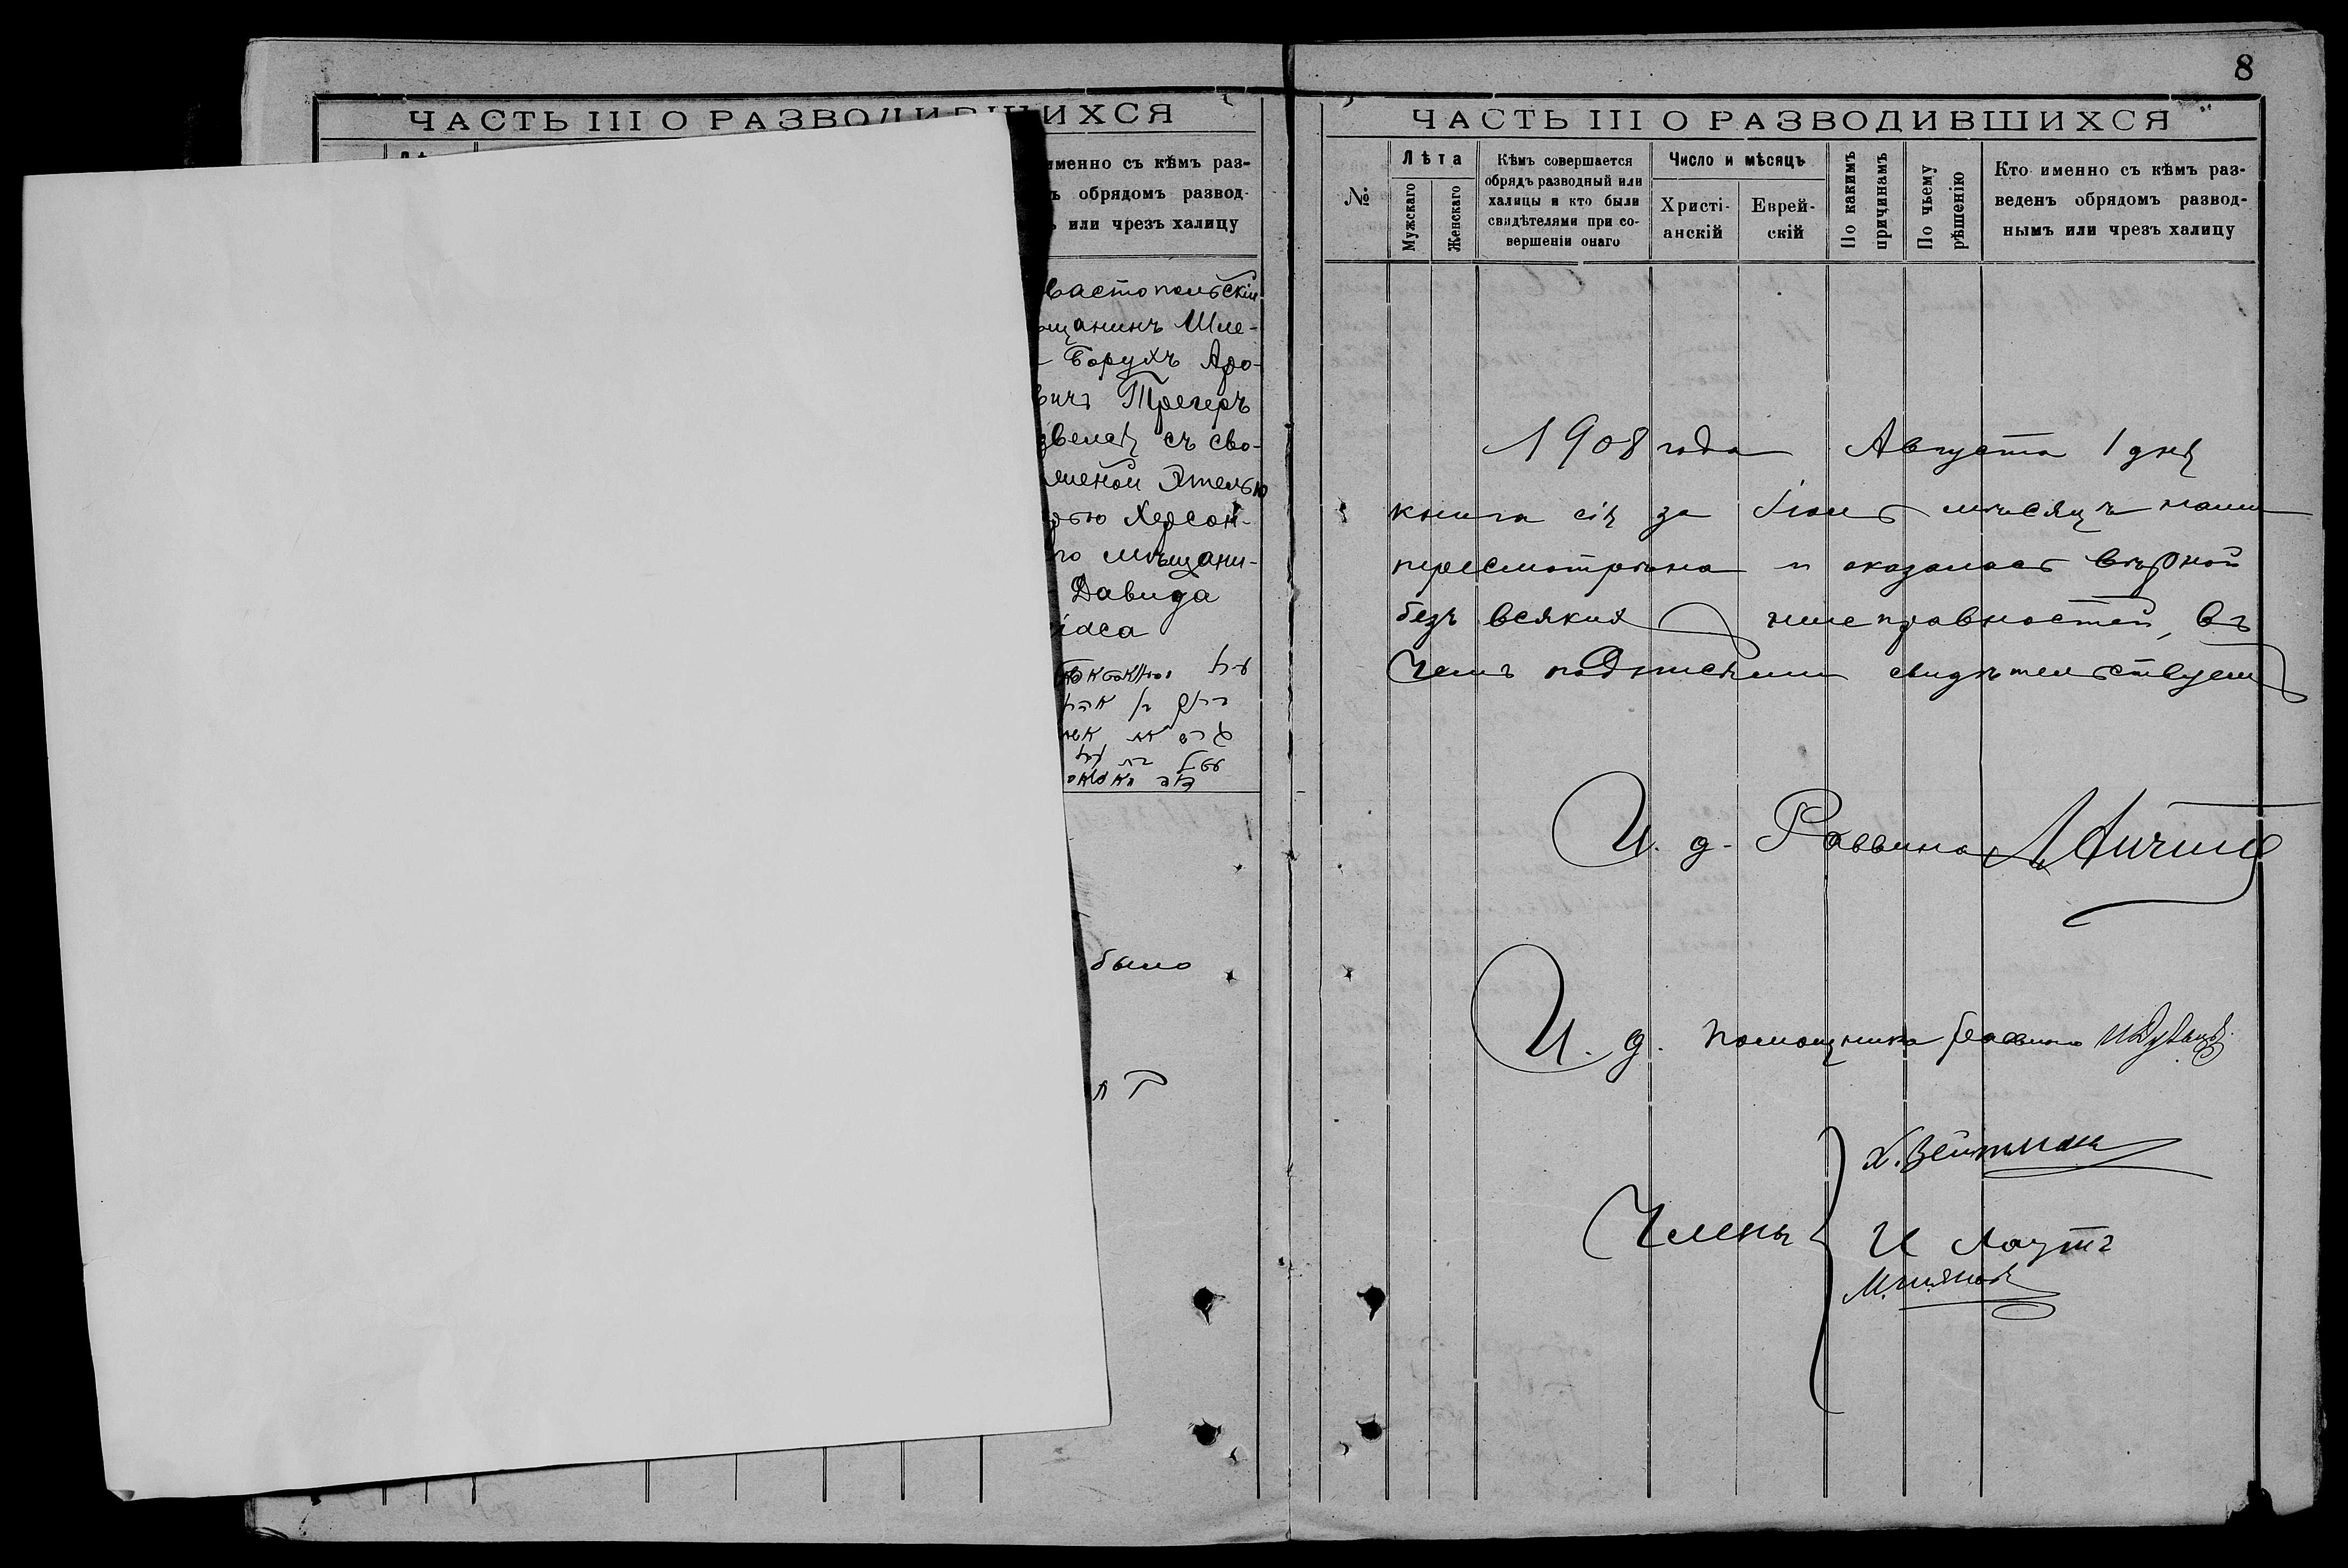 ЧАСТЬ III О РАЗВОДИВШИХСЯ
именно съ кѣмъ раз-
ъ обрядомъ развод-
ъ или чрезъ халицу
вастопольскій
щанинъ Шле-
Борухъ Аро-
вичъ Трегеръ
звелся съ сво-
женой Этелью
рью Херсон-
го мѣщани-
Давида
было
8
ЧАСТЬ III О РАЗВОДИВШИХСЯ
№
Лѣта
Мужскаго
Женскаго
Кѣмъ совершается
обрядъ разводный или
халицы и кто были
свидѣтелями при со-
вершеніи онаго
Число и мѣсяцъ
Христі-
анскій
Еврей-
скій
По какимъ
причинамъ
По чьему
рѣшенію
Кто именно съ кѣмъ раз-
веденъ обрядомъ развод-
нымъ или чрезъ халицу
1908 года Августа 1 дня
книга сія за Іюль мѣсяцъ нами
пересмотрѣна и оказалась вѣрной
безъ всякихъ неисправностей, въ
чемъ подписями свидѣтельствуемъ
И. д. Раввина
И. д. помощника раввина
Члены
Х. Вейтман
И Лаутъ